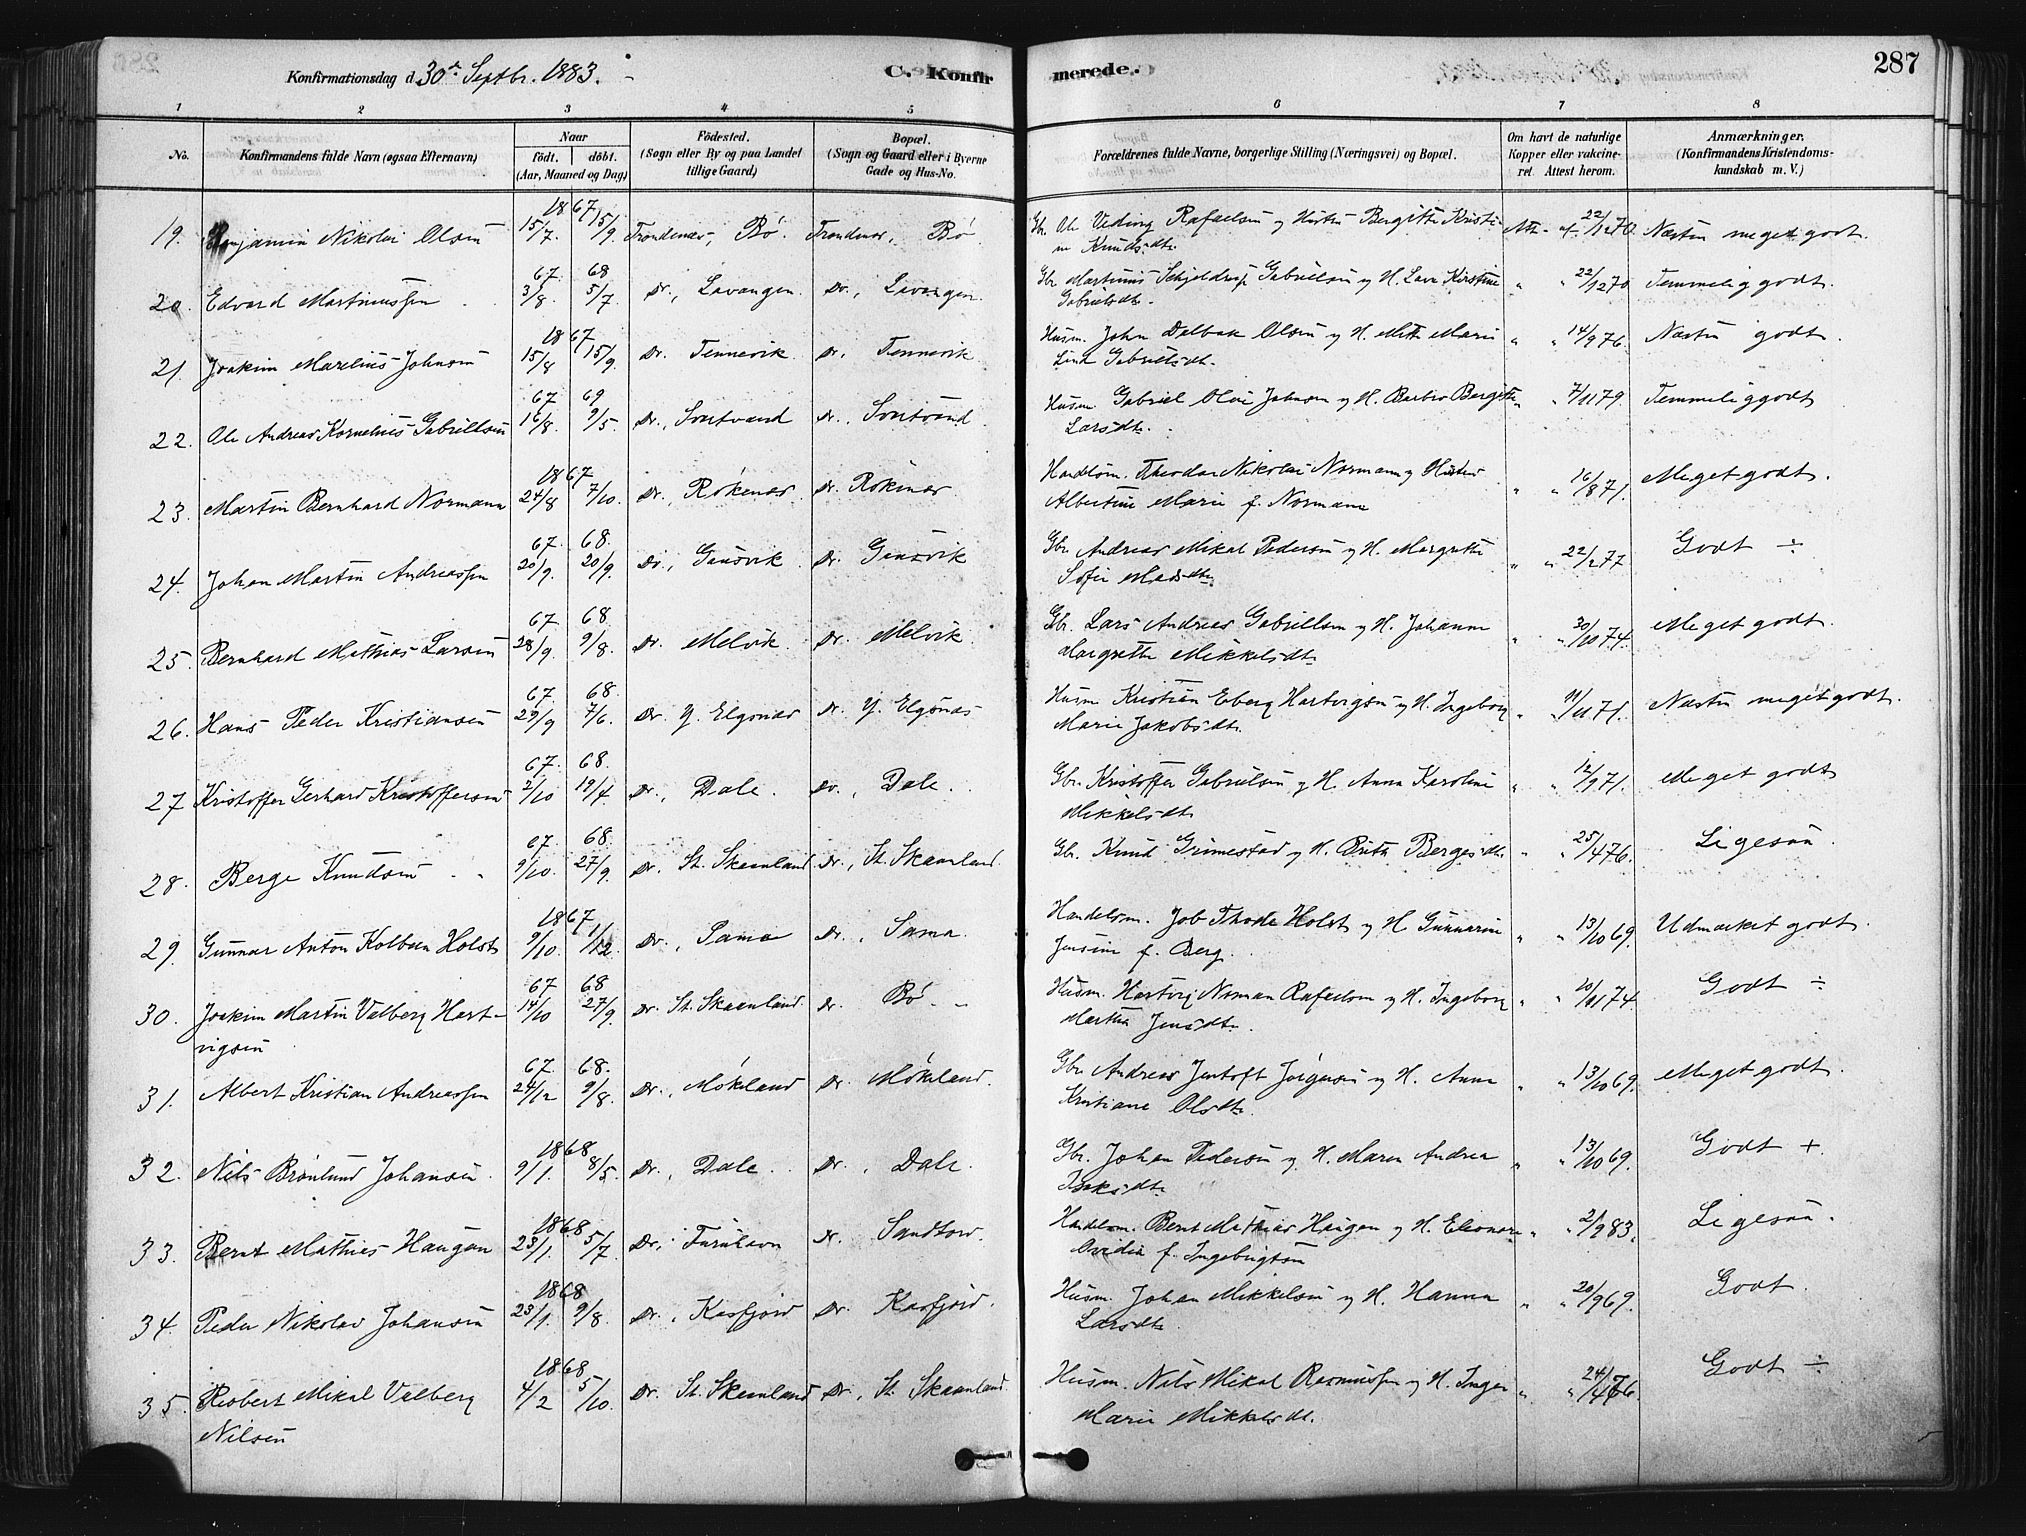 Konfirmationsdag d. 30te Septbr. 1883.
C. Konfirmerede.
287
1 2 3 4 5 6 7 8
No. Konfirmandens fulde Navn (ogsaa Efternavn) Naar født. døbt. (Aar, Maaned og Dag) Fødested. (Sogn eller By og paa Landet tillige Gaard) Bopæl. (Sogn og Gaard eller i Byerne Gade og Hus-No. Forældrenes fulde Navne, borgerlige Stilling (Næringsvei) og Bopæl. Om havt de naturlige Kopper eller vakcineret. Attest herom. Anmærkninger. (Konfirmandens Kristendomskundskab m. V.)
19. Benjamin Nikolai Olsen 1867 15/7 15/9 Trondenæs, Bø. Trondenæs, Bø Gbr. Ole Veding Rafaelsen og Hustru Bergitte Kristine Knudsdtr. Att. af 22/12 70. Næsten meget godt.
20. Edvard Martinussen 67. 3/8 68 5/7 Do., Lavangen. Do., Lavangen. Gbr. Martinus Schjeldrup Gabrielsen og H. Lava Kirstine Gabrielsdtr. " " 22/12 70 Temmelig godt.
21. Joakim Marelius Johnsen 1867 15/8 15/9 Do. Tennevik Do. Tennevik Husm. John Dalbak Olsen og H. Mette Marie Lind Gabrielsdtr. " " 14/9 76. Næsten godt.
22. Ole Andreas Kornelius Gabrielsen 67 16/8. 69 9/5. Do., Sortvand Do., Sortvand Husm. Gabriel Olai Johnsen og H. Barbro Bergitte Larsdtr. " " 7/11 79. Temmelig godt
23. Martin Bernhard Normann 1867 24/8 7/10. Do. Røkenæs. Do. Røkenæs Handelsm. Theodor Nikolai Normann og Hustru Albertine Marie f. Normann " " 16/8 71. Meget godt.
24. Johan Martin Andreassen 67. 20/9. 68. 20/9. Do., Gausvik Do. Gausvik Gbr. Andreas Mikal Pedersen og H. Margrethe Sofie Madsdtr. " " 22/2 77 Godt ÷
25. Bernhard Mathias Larsen 67 28/9. 68. 9/8. Do. Melvik. Do. Melvik. Gbr. Lars Andreas Gabrielsen og H. Johanna Margrethe Mikkelsdtr. " " 30/10 74. Meget godt.
26. Hans Peder Kristiansen 67 29/9 68. 7/6. Do. Y. Elgsnæs Do. Y. Elgsnæs Husm Kristian Eberg Hartvigsen og H. Ingeborg Marie Jakobsdtr. " " 11/11 71. Næsten meget godt.
27 Kristoffer Gerhard Kristoffersen 67. 2/10 68. 19/4 Do., Dale. Do., Dale. Gbr. Kristoffer Gabrielsen og H. Anna Karoline Mikkelsdtr. " " 12/9 71. Meget godt
28. Berge Knudsen 67 9/10. 68. 27/9. Do. St. Skaanland Do., St. Skaanland. Gbr. Knud Grimestad og H. Brita Bergesdtr. " " 25/4 76. Ligesaa.
29. Gunnar Anton Kolban Holst 1867 9/10. 1/12. Do., Sama Do. Sama. Handelsm. Job Thode Holst og H. Gunnarine Jensine f. Berg. " " 13/10 69. Udmærket godt.
30. Joakim Martin Valberg Hartvigsen 67 14/10 68 27/9. Do. St. Skaanland. Do Bø. Husm. Hartvig Norman Rafaelsen og H. Ingeborg Martha Jensdtr. " " 20/11 74. Godt ÷
31. Albert Kristian Andreassen 67. 24/12 68. 9/8. Do., Møkeland Do. Møkeland. Gbr. Andreas Jentoft Jørgensen og H. Anna Kristiane Olsdtr. " " 13/10 69. Meget godt.
32. Nils Brønlund Johansen. 1868 9/1. 8/5. Do., Dale. Do., Dale. Gbr. Johan Pedersen og H. Maren Andrea Isaksdtr. " " 13/10 69. Godt +.
33. Bernt Mathies Haugen 1868 23/1. 5/7. Do., Do. Sandtorv. Handelsm. Bernt Mathias Haugen og H. Eleonore Ovidia f. Ingebrigtsen " " 2/9 83. Ligesaa.
34. Peder Nikolai Johansen 1868 23/1. 9/8. Do., Kasfjord Do. Kasfjord. Husm. Johan Mikkelsen og H. Hanna Larsdtr. " " 20/9 69. Godt.
35. Robert Mikal Valberg Nilsen 1868 4/2 5/10. Do. St. Skaanland Do., St. Skaanland. Husm. Nils Mikal Rasmussen og H. Inger Marie Mikkelsdt. " " 24/4 76. Godt ÷